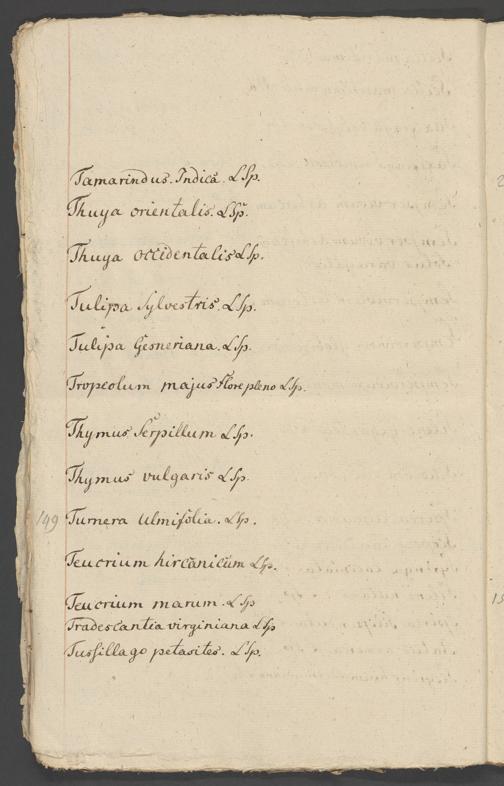 Tamarindus. Indica. L Sp.
Thuya orientalis. L Sp.
Thuya occidentalis L Sp.
Tulipa Sylvestris. L Sp.
Tulipa Gesneriana. L Sp.
Tropeolum majus Flore pleno L Sp.
Thymus Serpillum L Sp.
Thymus vulgaris L Sp.
149 Turnera Ulmifolia. L Sp.
Teucrium hircanicum L Sp.
Teucrium marum. L Sp
Tradescantia virginiana L Sp
Tussillago petasites. L Sp.